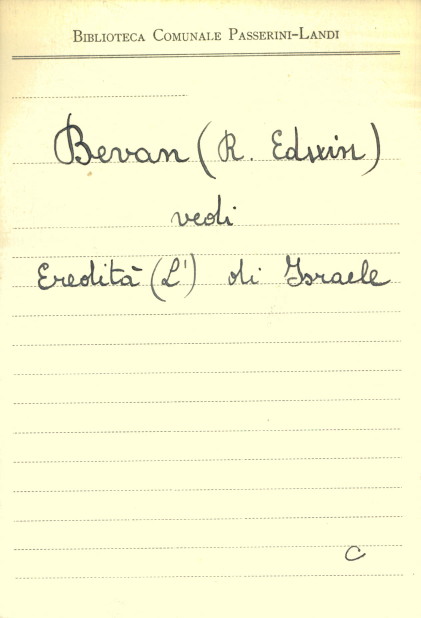 BIBLIOTECA COMUNALE PASSERINI-LANDI
Bevan (R. Edwin)
vedi
Eredità (L') di Israele
C